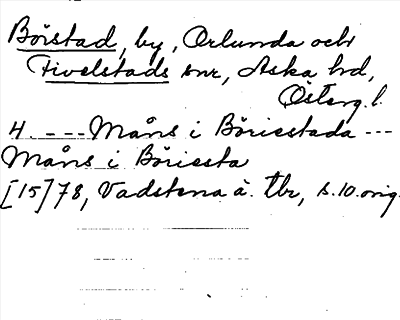 Börstad, by, Orlunda och
Fivelstads snr, Aska hd,
Österg. l.
4. --- Måns i Böriestada ---
Måns i Böriesta
[15]78, Vadstena ä. tbr, s. 10. orig.